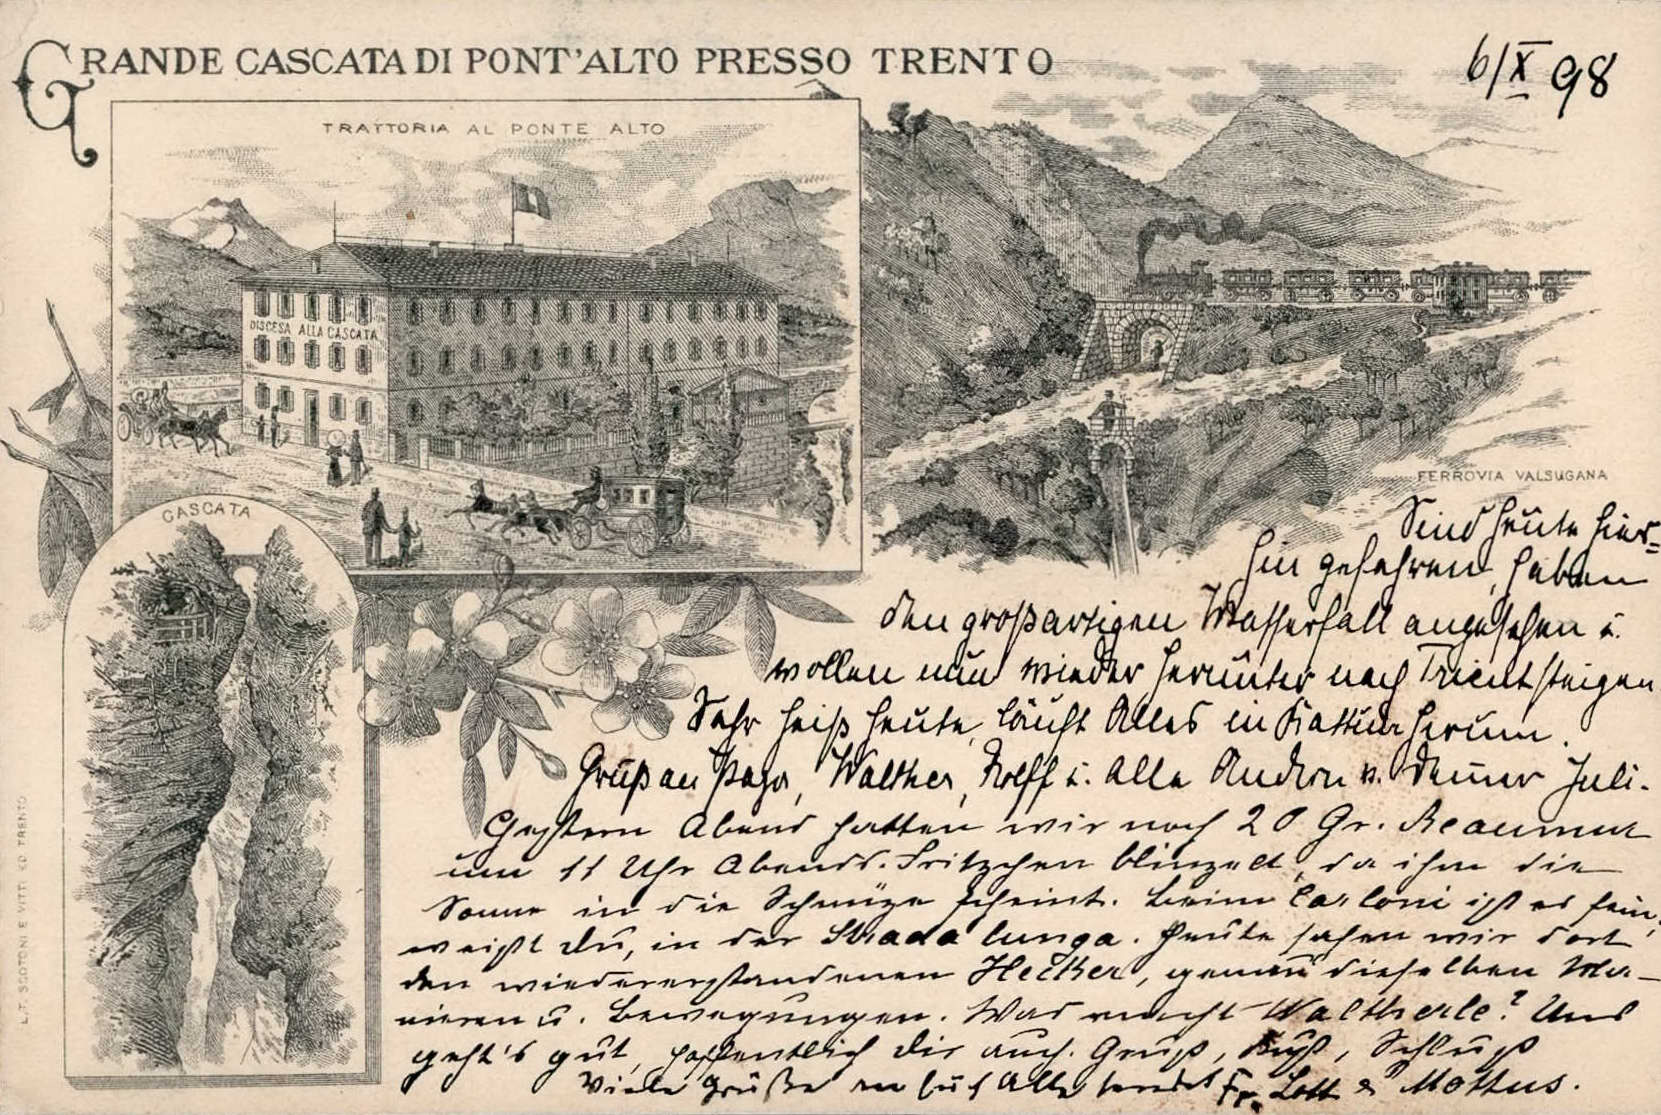 GRANDE CASCATA DI PONT'ALTO PRESSO TRENTO
6/X 98
TRATTORIA AL PONTE ALTO
DISCESA ALLA CASCATA
FERROVIA VALSUGANA
CASCATA
L.T. SCOTONI E VITTI ED TRENTO
Sind heute hier=
hin gefahren, haben
den großartigen Wasserfall angesehen u.
wollen nun wieder herunter nach Trient steigen
Sehr heiß heute, läuft Alles in Kattun herum.
Gruß an Papa, Walther, Rolff u. Alle Andern v. Deiner Juli.
Gestern Abend hatten wir noch 20 Gr. Reaumur
um 11 Uhr Abends. Fritzchen blinzelt, da ihm die
Sonne in die Schnüze scheint. Beim Carloni ist es fein,
weißt du, in der Strada lunga. Heute sahen wir dort
den wiedererstandenen Hecker, genau dieselben Ma-
nieren u. Bewegungen. Was macht Waltherle? Uns
geht's gut, hoffentlich dir auch. Gruß, Kuß, Schluß
Viele Grüße an Euch Alle sendet Fr. Lott &